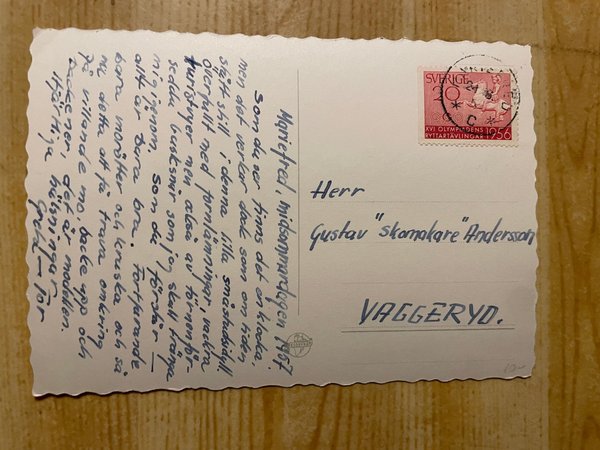 Mariefred, midsommardagen 1957
Som du ser finns det en klocka,
men det verkar dock som om tiden
stått still i denna lilla småstadsidyll.
Överfullt med fornlämningar, vackra
turistvyer men också av fornenliga
snår som jag skall tränga
mig igenom. Som du förstår —
att är bara bra. Fortfarande
bara morötter och kruska och så
detta att få trava omkring
på villande mo, backe upp och
backe ner, det är modellen.
Hjärtliga hälsningar
Gretel — Tor
SVERIGE
20
XVI OLYMPIADENS
RYTTARTÄVLINGAR 1956
Herr
Gustav "skomakare" Andersson
VAGGERYD.